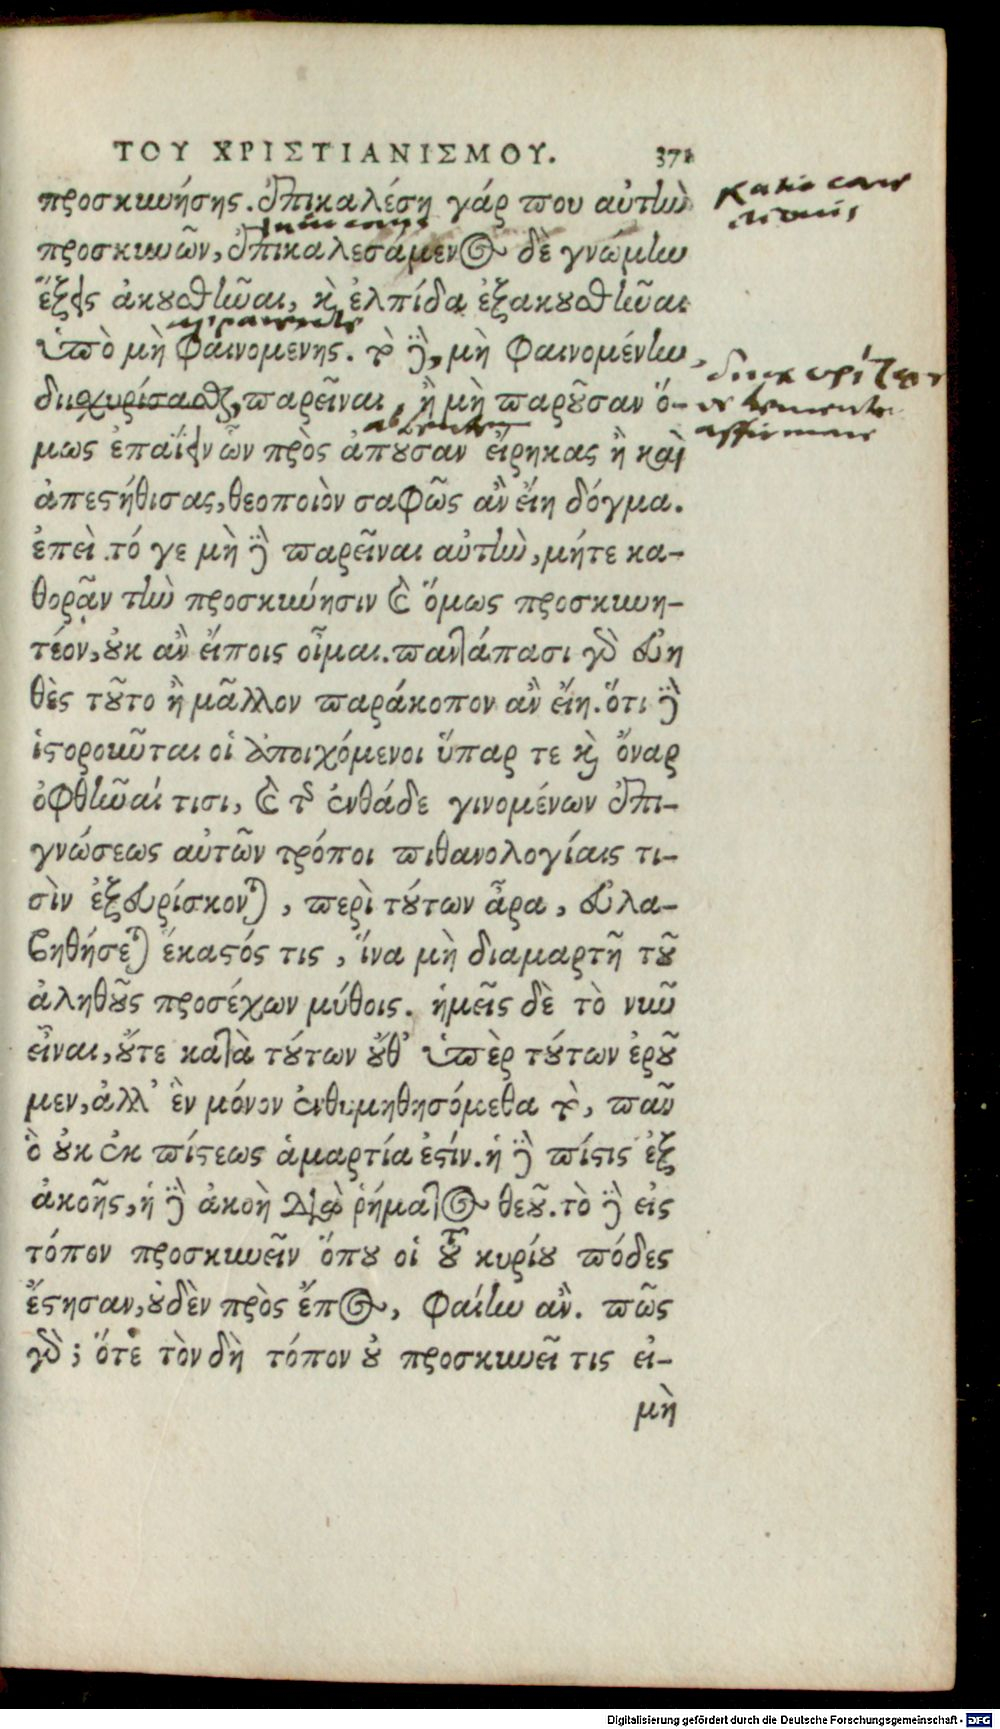 ΤΟΥ ΧΡΙΣΤΙΑΝΙΣΜΟΥ. 371
προσκυνήσης. ἐπικαλέση γάρ που αὐτὴν
προσκυνῶν, ἐπικαλεσάμενος δὲ γνώμην
ἕξεις ἀκουσθῆναι, καὶ ἐλπίδα ἐξακουσθῆναι
ὑπὸ μὴ φαινομενης. τὸ δὲ, μὴ φαινομένην,
διισχυρίσασθαι, παρεῖναι, ἢ μὴ παροῦσαν ὅ-
μως ἐπαΐειν ὧν πρὸς ἀποῦσαν εἴρηκας ἢ καὶ
ἀπεστήθισας, θεοποιὸν σαφῶς ἂν εἴη δόγμα.
ἐπεὶ τό γε μὴ δὲ παρεῖναι αὐτὴν, μήτε κα-
θορᾷν τὴν προσκύνησιν καὶ ὅμως προσκυνη-
τέον, οὐκ ἂν εἴποις οἶμαι. παντάπασι γὰρ εὐη
θὲς τοῦτο ἢ μᾶλλον παράκοπον ἂν εἴη. ὅτι δὲ
ἱστοροῦνται οἱ ἀποιχόμενοι ὕπαρ τε καὶ ὄναρ
ὀφθῆναί τισι, καὶ τῶν ἐνθάδε γινομένων ἐπι-
γνώσεως αὐτῶν τρόποι πιθανολογίαις τι-
σὶν ἐξευρίσκονται, περὶ τούτων ἆρα, εὐλα-
βηθήσεται ἕκαστός τις, ἵνα μὴ διαμαρτῆ τοῦ
ἀληθοῦς προσέχων μύθοις. ἡμεῖς δὲ τὸ νῦν
εἶναι, οὔτε κατὰ τούτων οὔθ᾽ ὑπὲρ τούτων ἐροῦ
μεν, ἀλλ᾽ ἓν μόνον ἐνθυμηθησόμεθα τὸ, πᾶν
ὃ οὐκ ἐκ πίστεως ἁμαρτία ἐστίν. ἡ δὲ πίστις ἐξ
ἀκοῆς, ἡ δὲ ἀκοὴ διὰ ῥήματος θεοῦ. τὸ δὲ εἰς
τόπον προσκυνεῖν ὅπου οἱ τοῦ κυρίου πόδες
ἔστησαν, οὐδὲν πρὸς ἔπος, φαίην ἂν. πῶς
γὰρ; ὅτε τὸν δὴ τόπον οὐ προσκυνεῖ τις εἰ-
μὴ
Digitalisierung gefördert durch die Deutsche Forschungsgemeinschaft - DFG